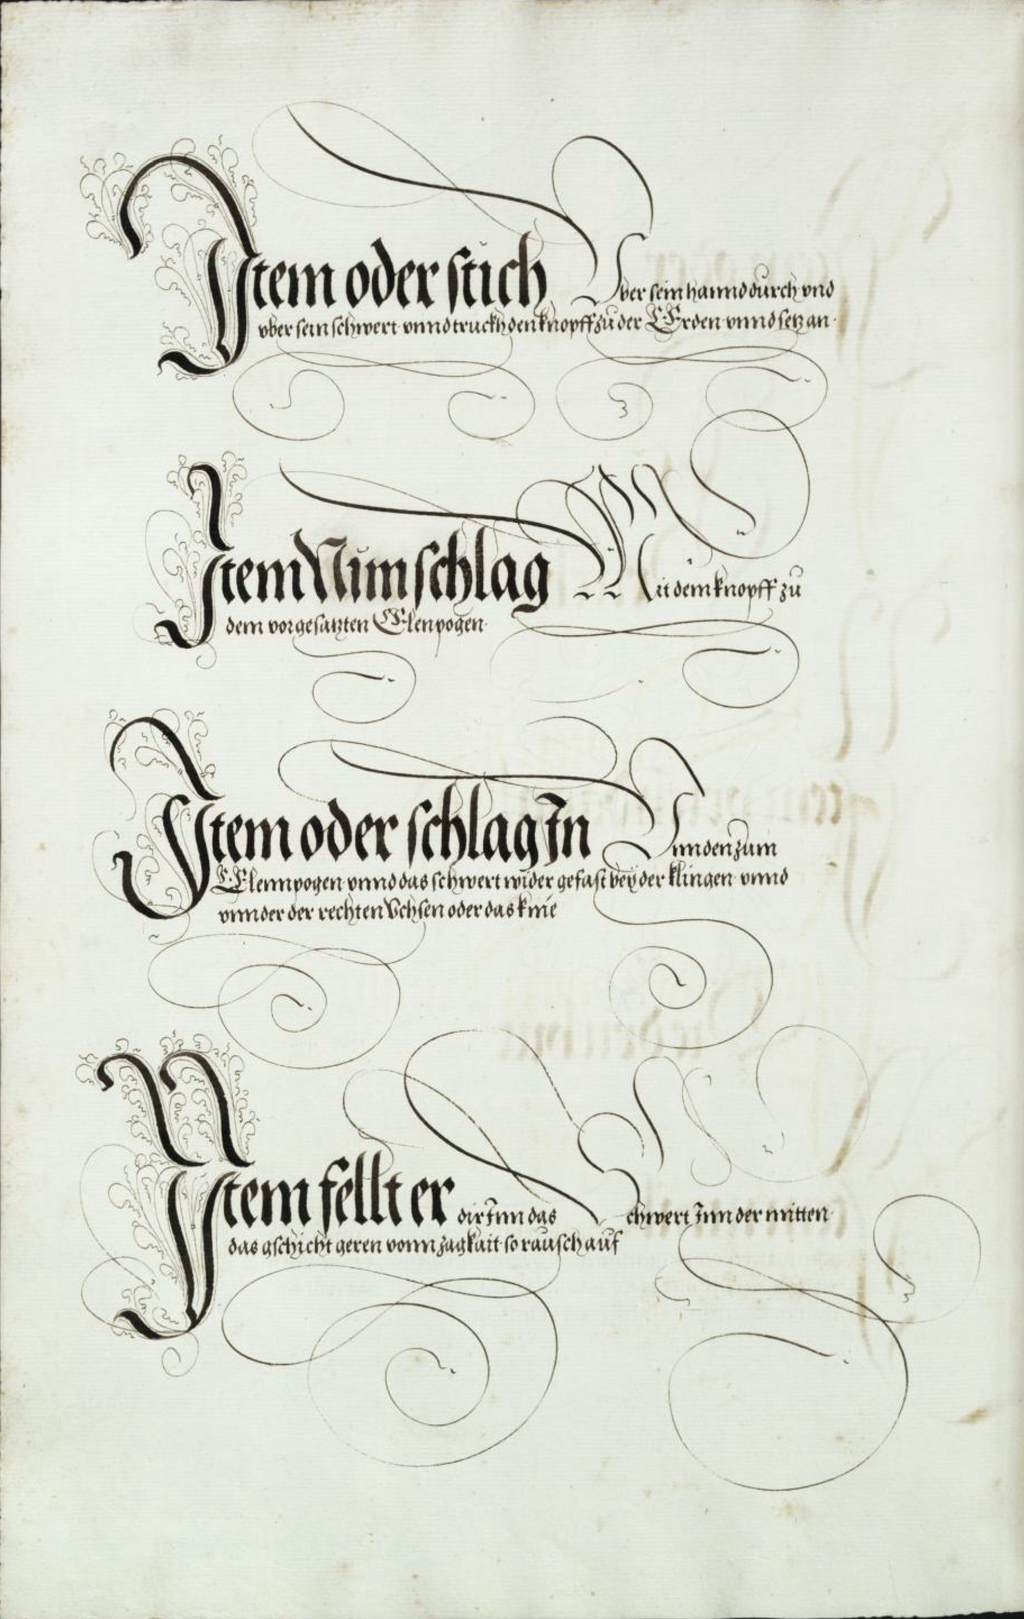 Item oder stich Vber sein hannd durch vnd
vber sein schwert vnnd truckh den knopff zu der Erden vnnd setz an.
Item Nim schlag Mit dem knopff zu
dem vorgesatzten Elenpogen.
Item oder schlag In vnnden zum
Elennpogen vnnd das schwert wider gefast bey der klingen vnnd
vnnder der rechten Vchsen oder das knie
Item fellt er dir Inn das Schwert Inn der mitten
das gschicht geren vonn zagkait so rausch auf